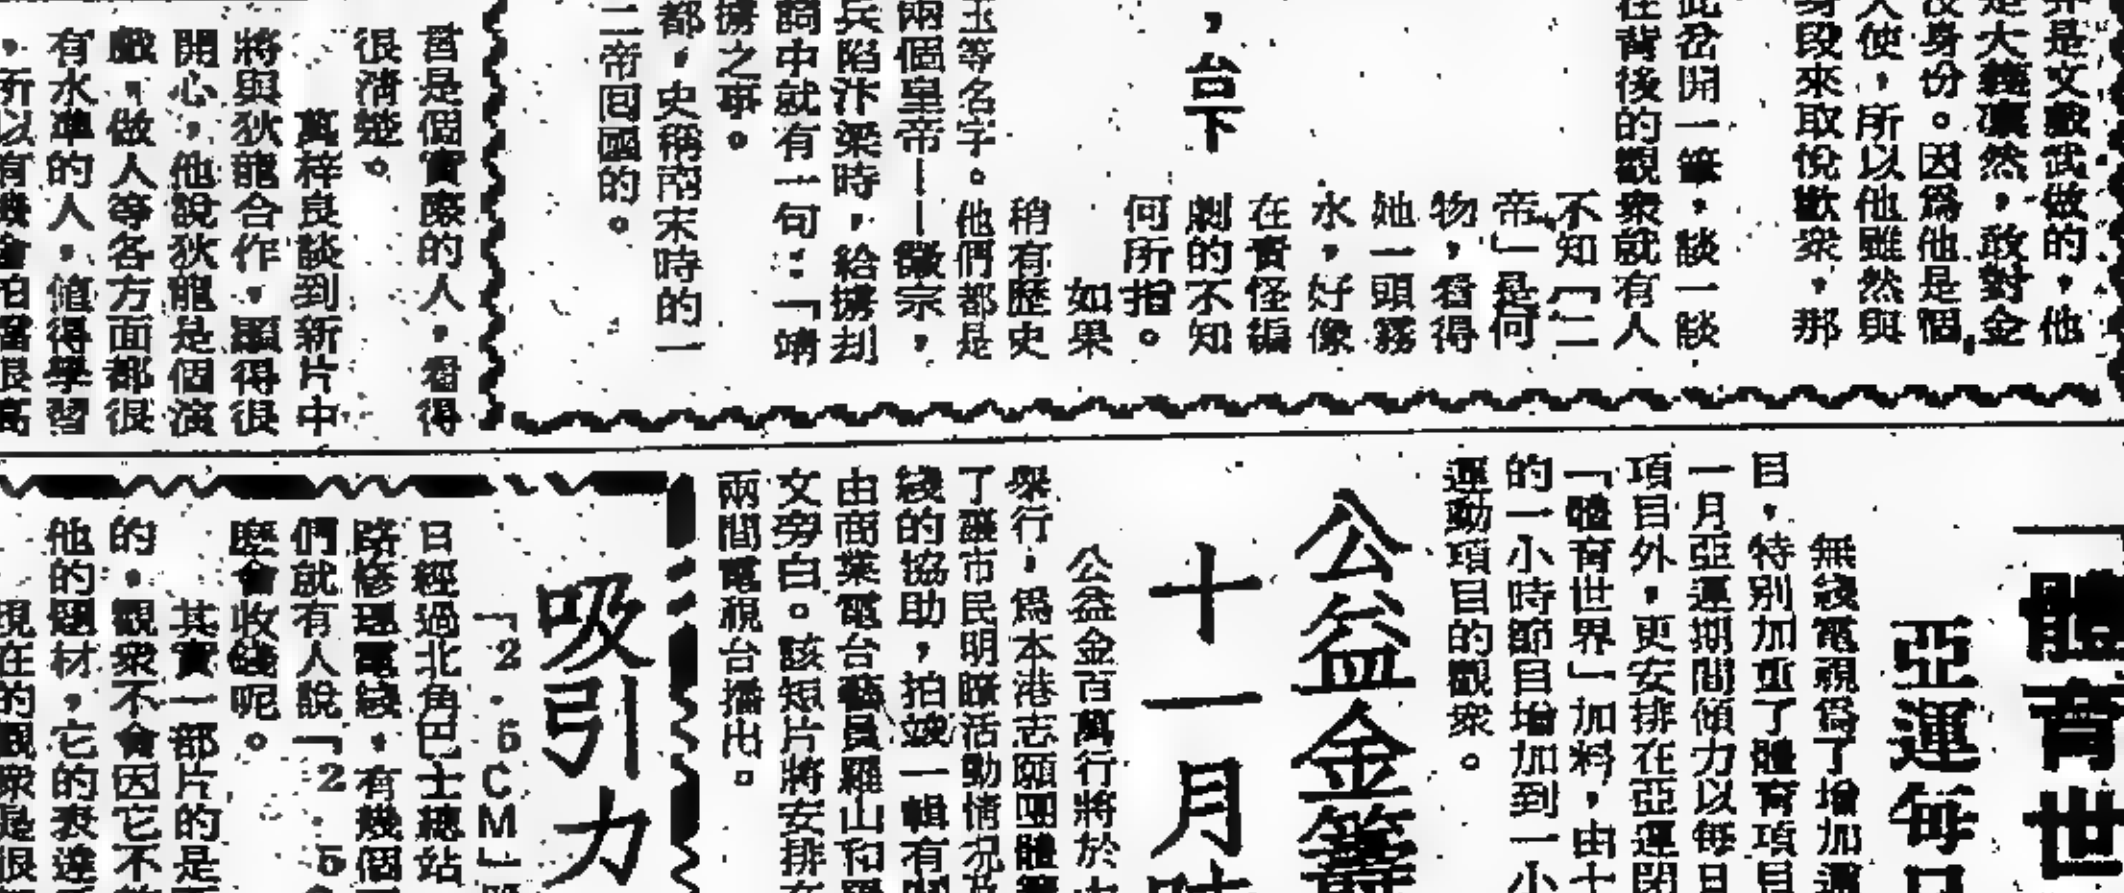 界是文戲武做的，他
是大義凜然，敢對金
身份。因爲他是個
大使，所以他雖然與
身段來取悅歡衆，那
此岔開一筆，談一談
在背後的觀衆就有人
不知「二
帝」是何
物，看得
她一頭霧
水，好像
在責怪編
劇的不知
何所指。
如果
稍有歷史
，台下
玉等名字。他們都是
兩個皇帝——徽宗，
兵陷汴梁時，給擄刦
詞中就有一句：「靖
擄之事。
都，史稱南宋時的一
二帝囘國的。
是個實際的人，看得
很清楚。
萬梓良談到新片中
將與狄龍合作，顯得很
開心，他說狄龍是個演
戲，做人等各方面都很
有水準的人，值得學習
，所以有機會拍檔很高
體育世
亞運每日
無綫電視爲了增加運
目，特別加重了體育項目
一月亞運期間傾力以每日
項目外，更安排在亞運閉
「體育世界」加料，由十
的一小時節目增加到一小
運動項目的觀衆。
公益金籌
十一月
公益金百萬行將於
舉行，爲本港志願團體籌
了讓市民明瞭活動情況及
綫的協助，拍竣一輯有關
由商業電台藝員羅山和
文旁白。該短片將安排在
兩間電視台播出。
吸引力
「2．5CM」
日經過北角巴士總站
路修理電綫，有幾個
們就有人說「2．5
麼會收錢呢。
其實一部片的是
的，觀衆不會因它不
他的題材，它的表達
現在的觀衆是很